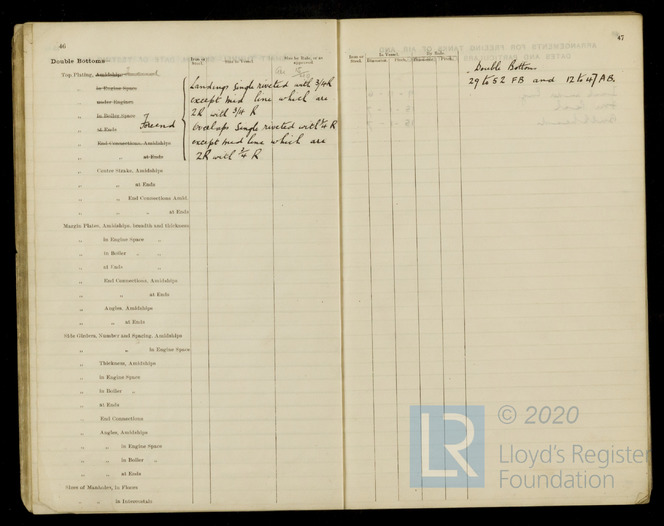 46
Double Bottoms
Item or Scant.
Size in Vessel.
Size by Rule, or as approved
Top Plating, Amidships
„ in Engine Space
„ under Engines
„ in Boiler Space
„ at Ends
„ End Connections, Amidships
„ „ at Ends
Landings Single riveted with 3/4 R
except mid line which are
2R with 3/4 R
Overlaps Single riveted with 3/4 R
except mid line which are
2R with 3/4 R
„ Center Strake, Amidships
„ „ at Ends
„ „ End Connections Amid.
„ „ „ at Ends
Margin Plates, Amidships, breadth and thickness
„ in Engine Space „
„ in Boiler „ „
„ at Ends „
„ End Connections, Amidships
„ „ at Ends
„ Angles, Amidships
„ „ at Ends
Side Girders, Number and Spacing, Amidships
„ „ in Engine Space
„ Thickness, Amidships
„ in Engine Space
„ in Boiler „
„ at Ends
„ End Connections
„ Angles, Amidships
„ „ in Engine Space
„ „ in Boiler „
„ „ at Ends
Sizes of Manholes, in Floors
„ in Intercostals
47
In Vessel.
By Rule.
Double Bottom
29 to 52 FB and 12 to 47 AB.
LR
© 2020
Lloyd's Register
Foundation